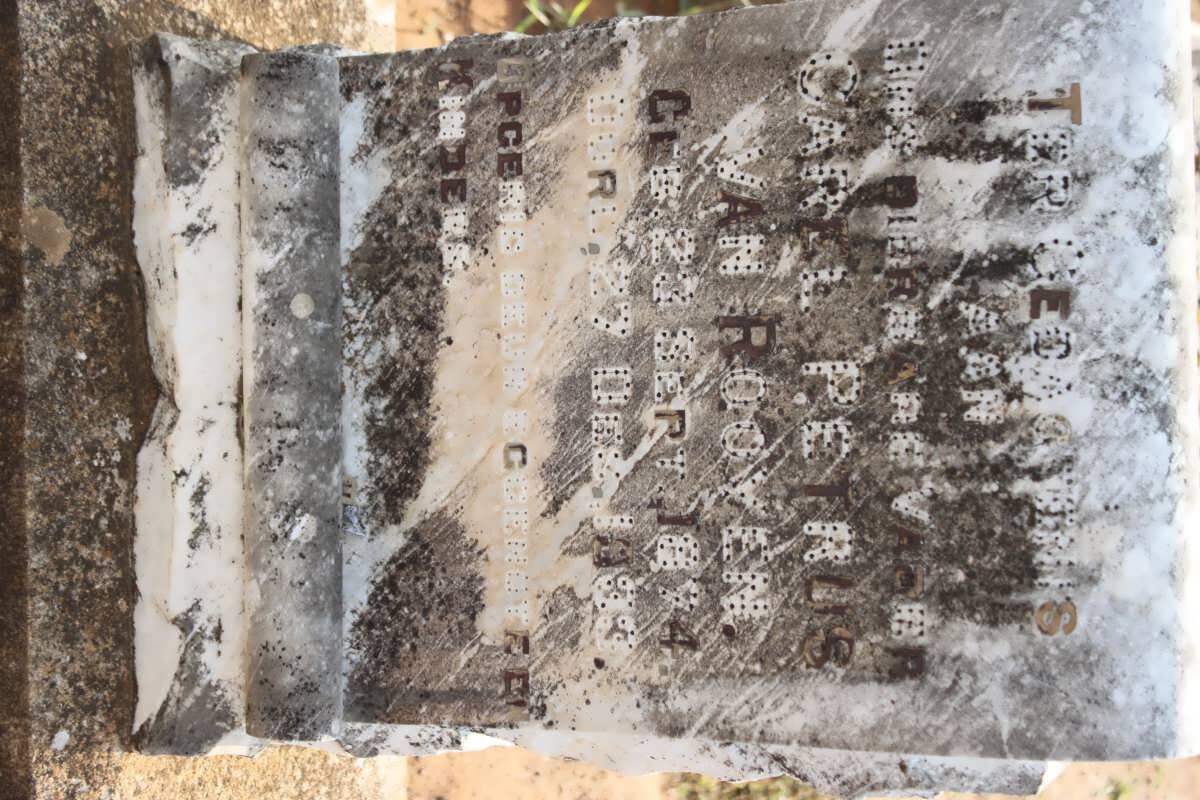 TER GEDAGTENIS
AAN
ONS DIERBARE VADER
CAREL PETRUS
VAN ROOYEN.
GEB. 22 SEPT. 1874.
OORL. 27 DES.
OPGERIG DEUR
KINDERS